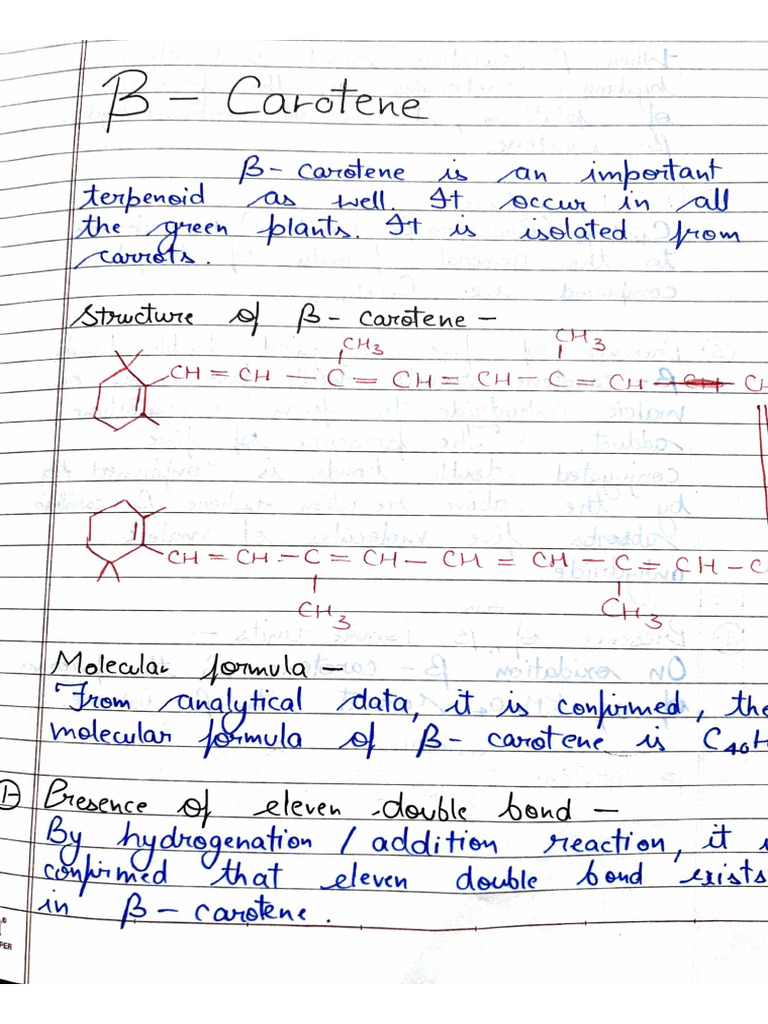 β - Carotene
β - carotene is an important
terpenoid as well. It occur in all
the green plants. It is isolated from
carrots.
Structure of β - carotene -
CH3 CH3
CH = CH - C = CH = CH - C = CH - CH
CH = CH - C = CH - CH = CH - C = CH - C
CH3 CH3
Molecular formula
From analytical data, it is confirmed, the
molecular formula of β - carotene is C40H
① Presence of eleven double bond -
By hydrogenation / addition reaction, it
confirmed that eleven double bond exists
in β - carotene.
PER